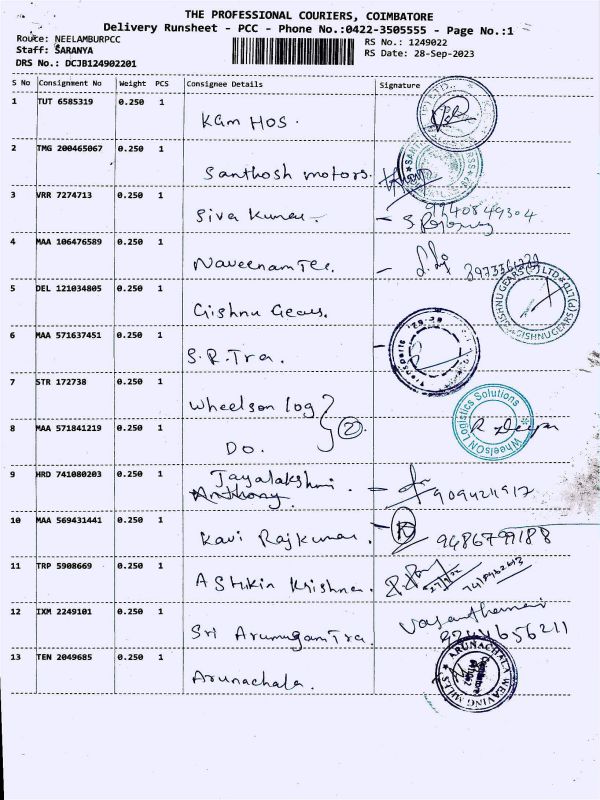 THE PROFESSIONAL COURIERS, COIMBATORE
Delivery Runsheet - PCC - Phone No.:0422-3505555 - Page No.:1
Route: NEELAMBURPCC
RS No.: 1249022
Staff: SARANYA
RS Date: 28-Sep-2023
DRS No.: DCJB124902201
S No Consignment No Weight PCS Consignee Details Signature
1 TUT 6585319 0.250 1
Kam Hos.
2 TMG 200465067 0.250 1
Santhosh motors.
3 VRR 7274713 0.250 1
Siva Kumar
9940849304
4 MAA 106476589 0.250 1
Naveenam Tec.
5 DEL 121034805 0.250 1
Gishnu Gears.
GISHNU GEARS(P) LTD
6 MAA 571637451 0.250 1
S.R.Tra.
7 STR 172738 0.250 1
Wheelson log
WheelsON Logistics Solutions
8 MAA 571841219 0.250 1
Do.
2
R. Deepa
9 HRD 741080203 0.250 1
Jayalakshmi.
Anthony
10 MAA 569431441 0.250 1
Kavi Rajkumar.
9486799188
11 TRP 5908669 0.250 1
AShikin Krishna.
12 IXM 2249101 0.250 1
Sri Arumugam Tra.
13 TEN 2049685 0.250 1
Arunachala.
ARUNACHALA WEAVING MILLS